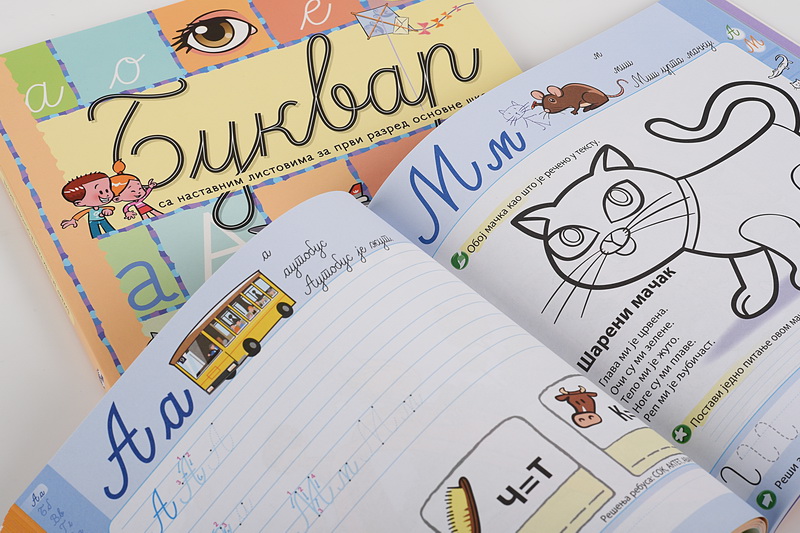 а о е
Буквар
са наставним листовима за први разред основне
а А
м
миш
Миш црта мачку
М м
Обој мачка као што је речено у тексту.
Шарени мачак
Глава ми је црвена.
Очи су ми зелене.
Тело ми је жуто.
Ноге су ми плаве.
Реп ми је љубичаст.
Постави једно питање овом
а
аутобус
Аутобус је жут
А а
Ч=Т
К
Решења ребуса: СОК,
Реши
А а